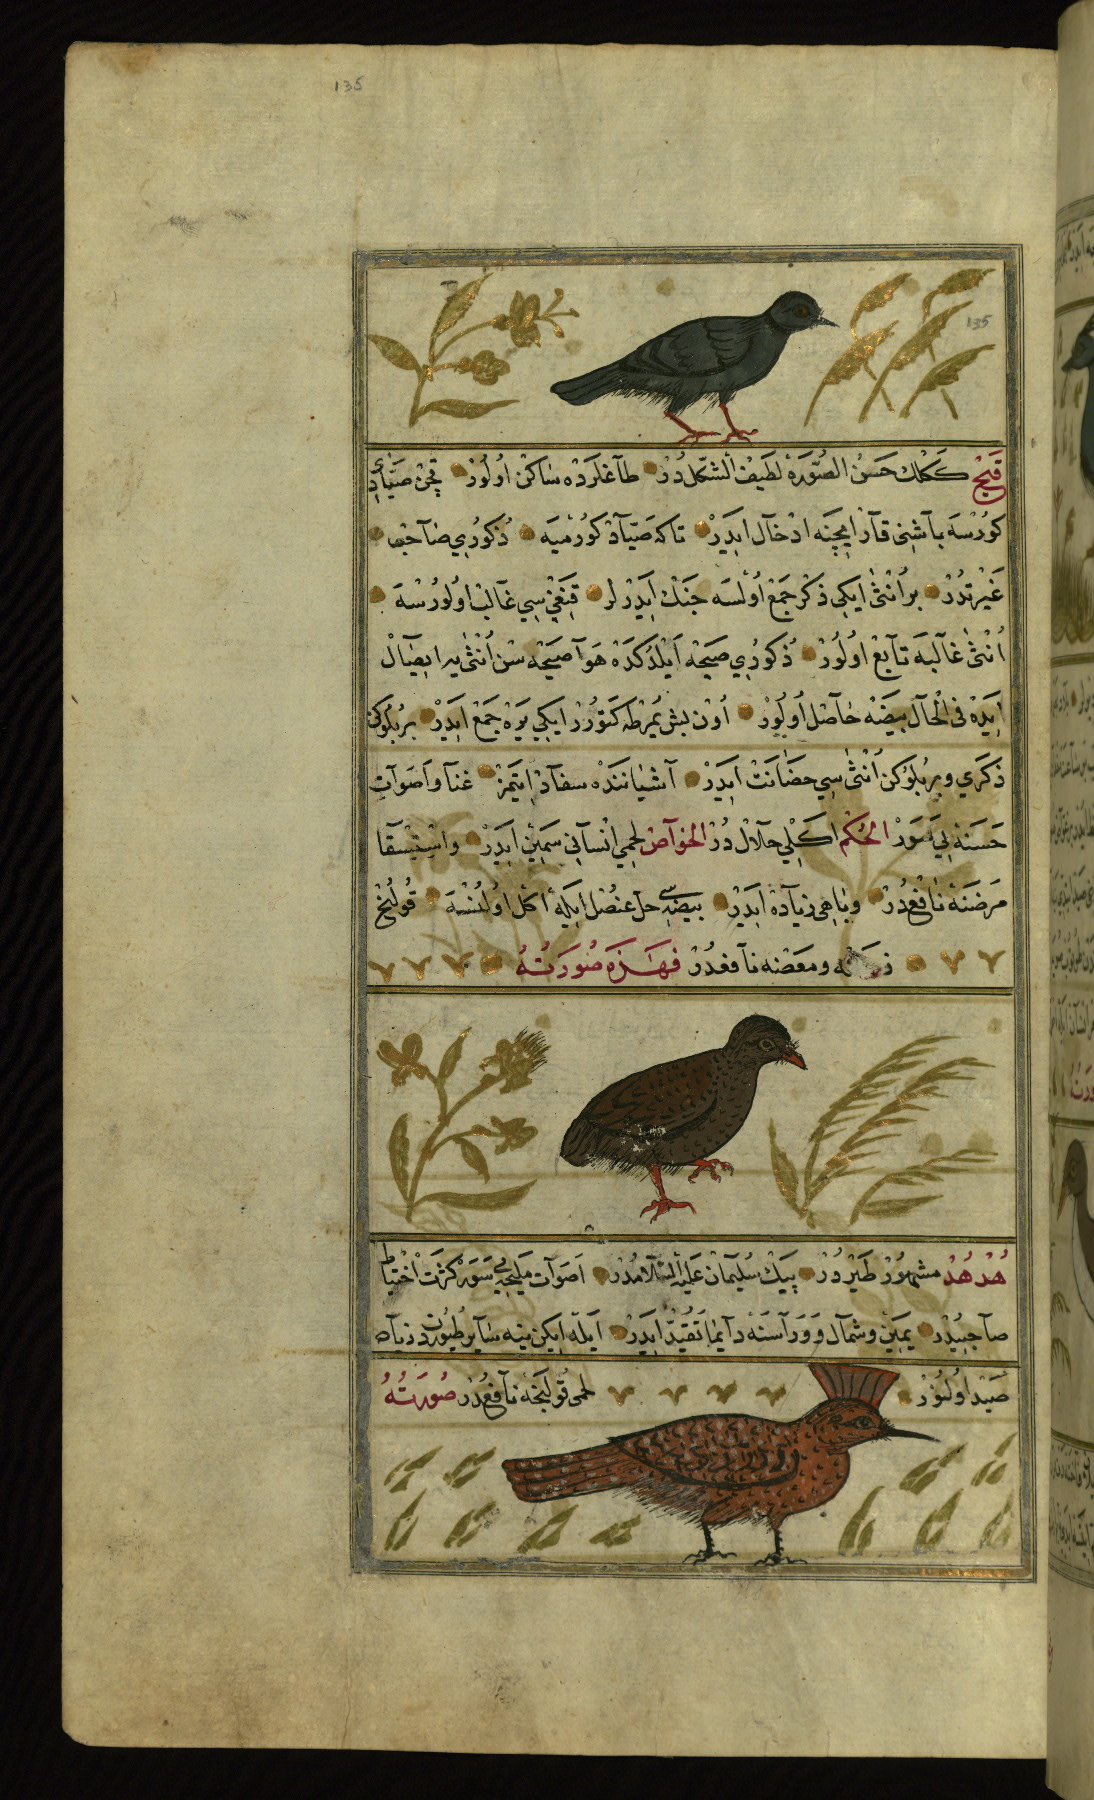 135
135
قَبَجْ كَكْلِك حَسَنُ الصُّوَرَهٔ لَطِيفُ الشَّكْل دُرْ طاغلَرْدَه سَاكِنْ اوُلُورْ قَچَنْ صَيَّادِ
كورُسَه باشِنِى قار اِيچِنَه اِدْخَال اِيدَرْ تاكه صَيّاد كورُمِيَه ذُكورُى صَاحِبِ
غَيْرَتدُرْ بر اُنْثٰى ايكى ذَكَر جَمْع اُولسَه جَنْك اِيدَرْلر قَنغِيسِى غَالِبْ اوُلُورْسَه
اُنْثٰى غَالِبَه تَابِع اوُلُورْ ذُكورُى صَيْحَه اَيْلَدُكدَه هَوَا صَيْحَه سْن اُنْثٰى يه ايصَال
اِيدَه فى الْحَال بيضَه حَاصِل اوُلُورْ اون بش يُمرْطه كتورُر ايكى يَرَه جَمْع اِيدَرْ بر بُلُوكن
ذكَرى و بر بُلُوكن اُنْثٰى سى حضَانَتْ اِيدَرْ آشيانَنْدَه سفاد اِيتمَزْ غنَا و اَصْوَاتِ
حَسَنَه يى سَوَرْ الحُكْم اَكلِى حَلَال دُرْ الخَوَاصْ لحمى اِنْسَانِى سَمِينْ اِيدَرْ و اِسْتِسْقَا
مَرَضنَه نَافِعْدُرْ و بَاهِى زيَادَه اِيدَرْ بيضَه سى خل عنصُل ايله اكل اوُلُنْسَه قُولُنْجْ
و مغصه نافعدُرْ فَهٰذِه صُورَتُهُ
هُدْهُدْ مشهُورْ طَيْردُرْ پيك سُليمان عليه السلامدُرْ اصَوات مليحه يى سَوَرْ كَثْرَت اخْتِيَاط
صاحبيدُر يمين و شمال و وراسنه دايما تَقَيُّدْ اِيدَرْ ايله ايكن ينه سَاير طيوردن زياده
صَيْد اوُلنورْ لحمى قولنجه نافعدُر صُورَتُهُ